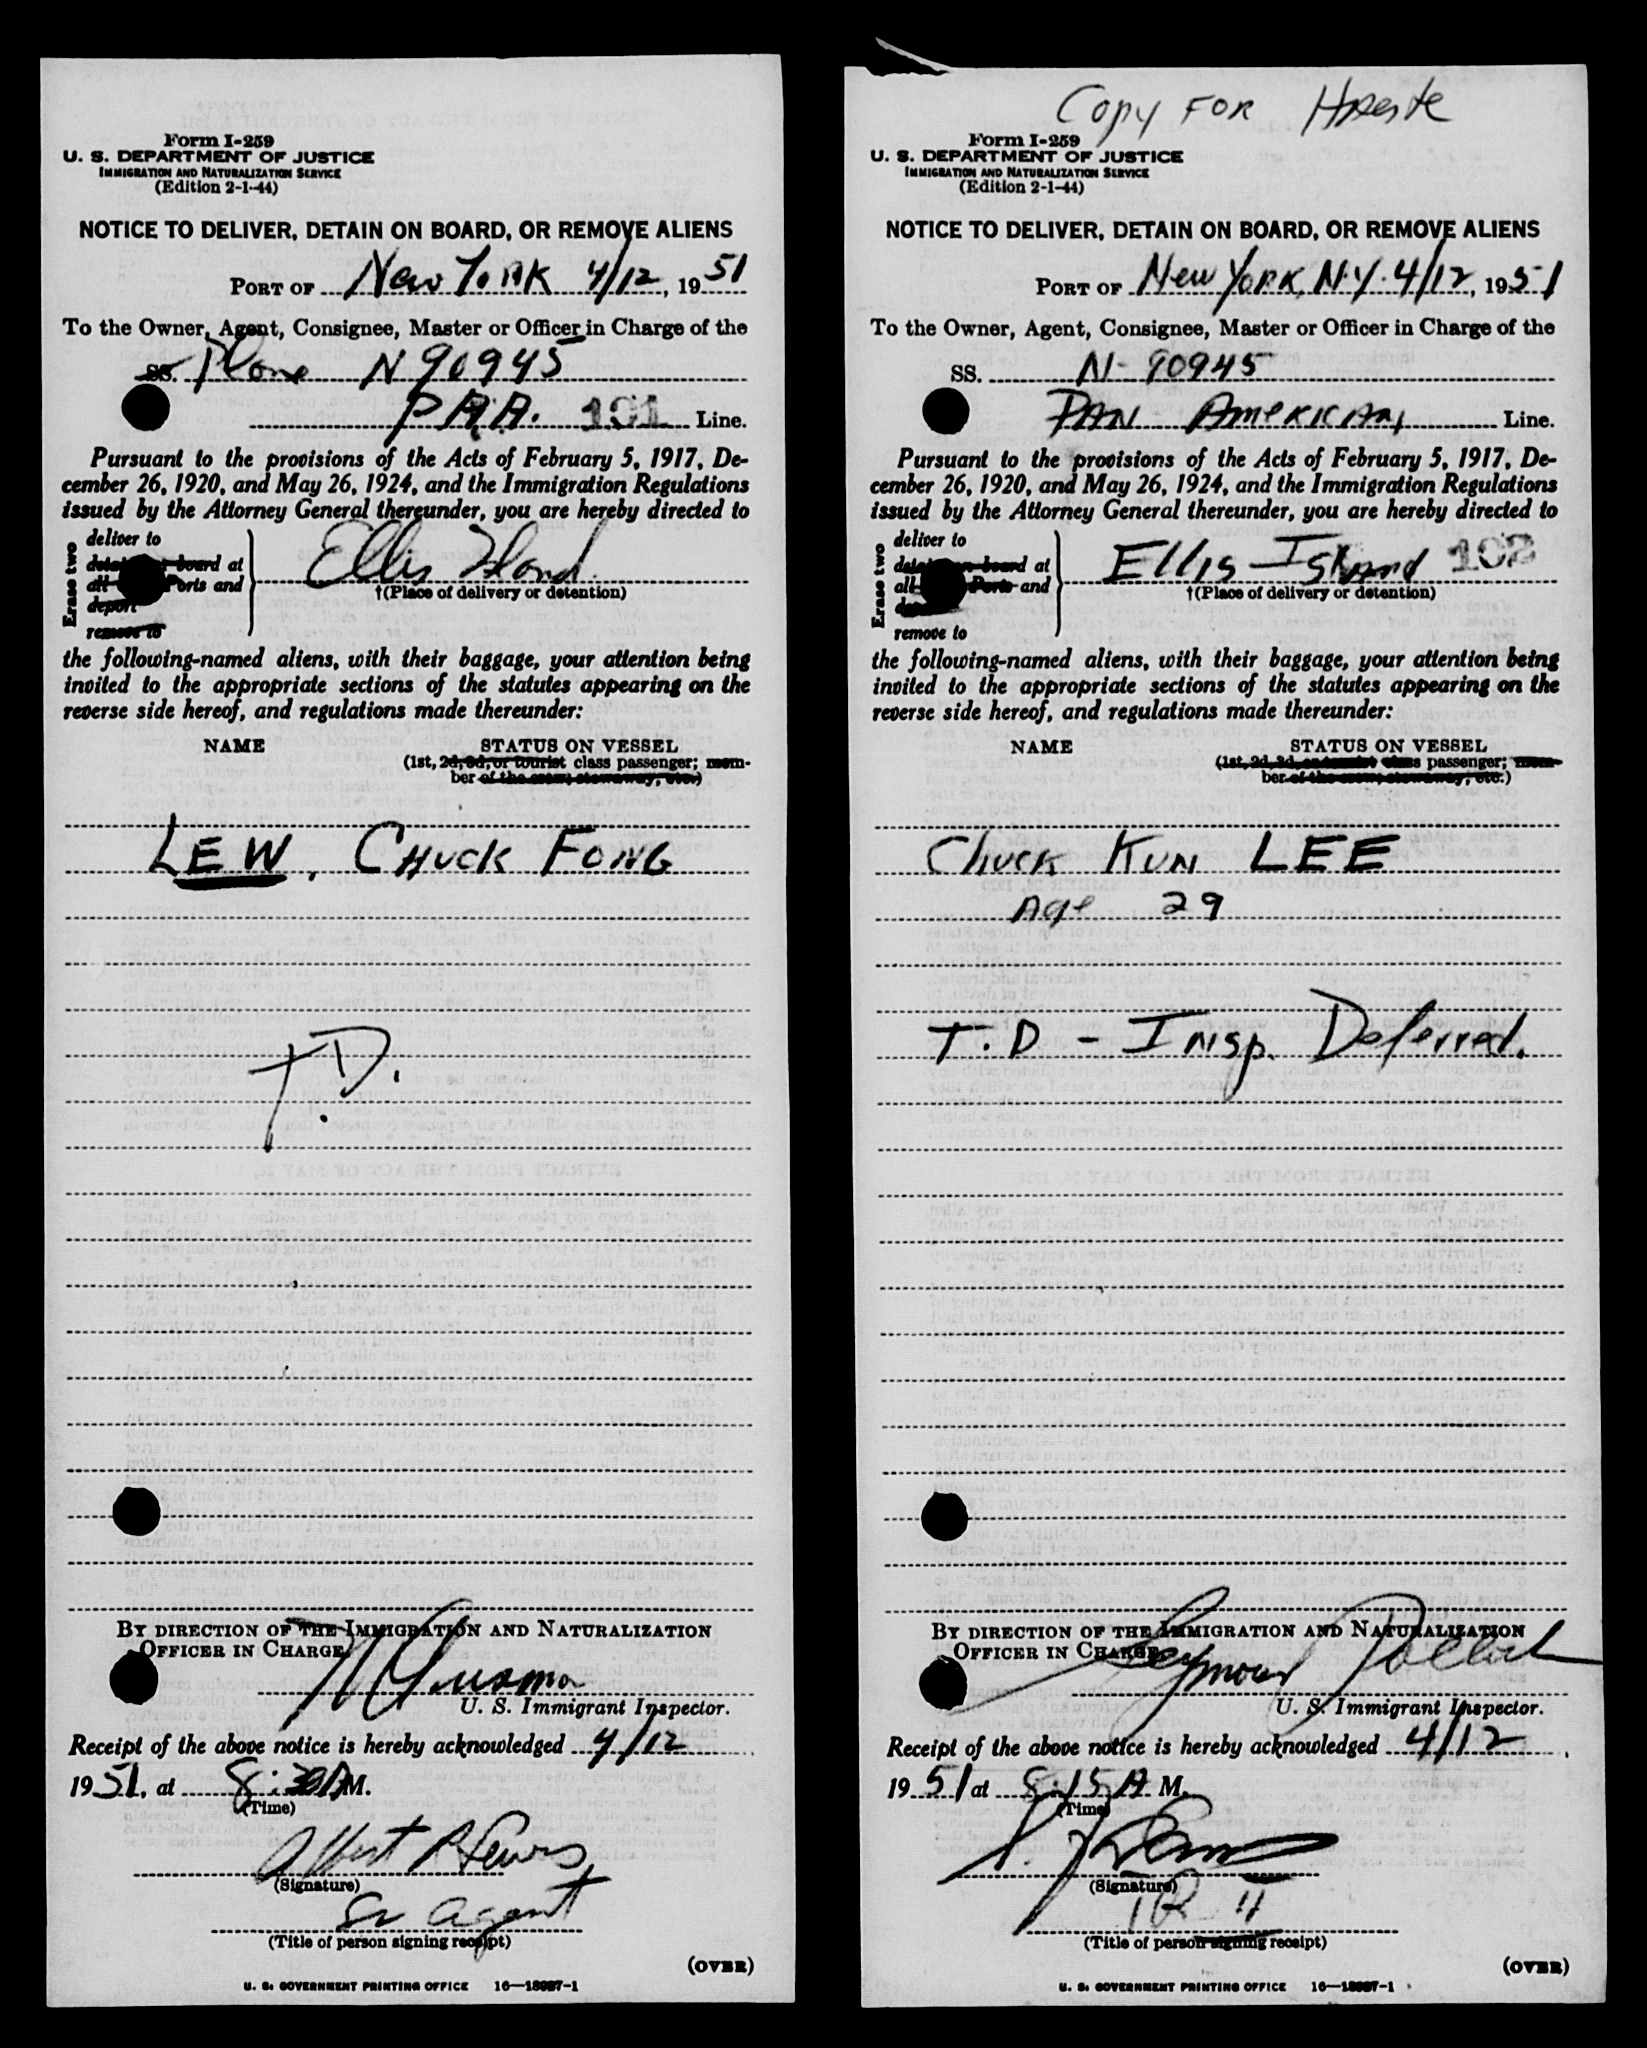 Form I-259
U. S. DEPARTMENT OF JUSTICE
IMMIGRATION AND NATURALIZATION SERVICE
(Edition 2-1-44)
NOTICE TO DELIVER, DETAIN ON BOARD, OR REMOVE ALIENS
PORT OF New York 4/12, 1951
To the Owner, Agent, Consignee, Master or Officer in Charge of the
SS. Plane N 90945
P.A.A. 101 Line.
Pursuant to the provisions of the Acts of February 5, 1917, De-
cember 26, 1920, and May 26, 1924, and the Immigration Regulations
issued by the Attorney General thereunder, you are hereby directed to
Erase two
deliver to
board at
all Ports and
deport
remove to
Ellis Island
†(Place of delivery or detention)
the following-named aliens, with their baggage, your attention being
invited to the appropriate sections of the statutes appearing on the
reverse side hereof, and regulations made thereunder:
NAME STATUS ON VESSEL
(1st, 2d, 3d, or tourist class passenger; mem-
ber of the crew; stowaway, etc.)
LEW, CHUCK FONG
T.D.
BY DIRECTION OF THE IMMIGRATION AND NATURALIZATION
OFFICER IN CHARGE
U. S. Immigrant Inspector.
Receipt of the above notice is hereby acknowledged 4/12
1951, at 8:30 AM.
(Time)
Albert
(Signature)
Sr Agent
(Title of person signing receipt)
(OVER)
U. S. GOVERNMENT PRINTING OFFICE 16—13987-1
Copy FOR
Form I-259
U. S. DEPARTMENT OF JUSTICE
IMMIGRATION AND NATURALIZATION SERVICE
(Edition 2-1-44)
NOTICE TO DELIVER, DETAIN ON BOARD, OR REMOVE ALIENS
PORT OF New York, N.Y. 4/12, 1951
To the Owner, Agent, Consignee, Master or Officer in Charge of the
SS. N-90945
PAN AMERICAN Line.
Pursuant to the provisions of the Acts of February 5, 1917, De-
cember 26, 1920, and May 26, 1924, and the Immigration Regulations
issued by the Attorney General thereunder, you are hereby directed to
Erase two
deliver to
on board at
all Ports and
remove to
Ellis Island 102
†(Place of delivery or detention)
the following-named aliens, with their baggage, your attention being
invited to the appropriate sections of the statutes appearing on the
reverse side hereof, and regulations made thereunder:
NAME STATUS ON VESSEL
(1st, 2d, 3d, or tourist class passenger; mem-
ber of the crew; stowaway, etc.)
Chuck Kun LEE
Age 29
T.D - Insp. Deferred.
BY DIRECTION OF THE IMMIGRATION AND NATURALIZATION
OFFICER IN CHARGE
Seymour Pollack
U. S. Immigrant Inspector.
Receipt of the above notice is hereby acknowledged 4/12,
1951 at 8:15 A M.
(Time)
(Signature)
(Title of person signing receipt)
(OVER)
U. S. GOVERNMENT PRINTING OFFICE 16—13987-1